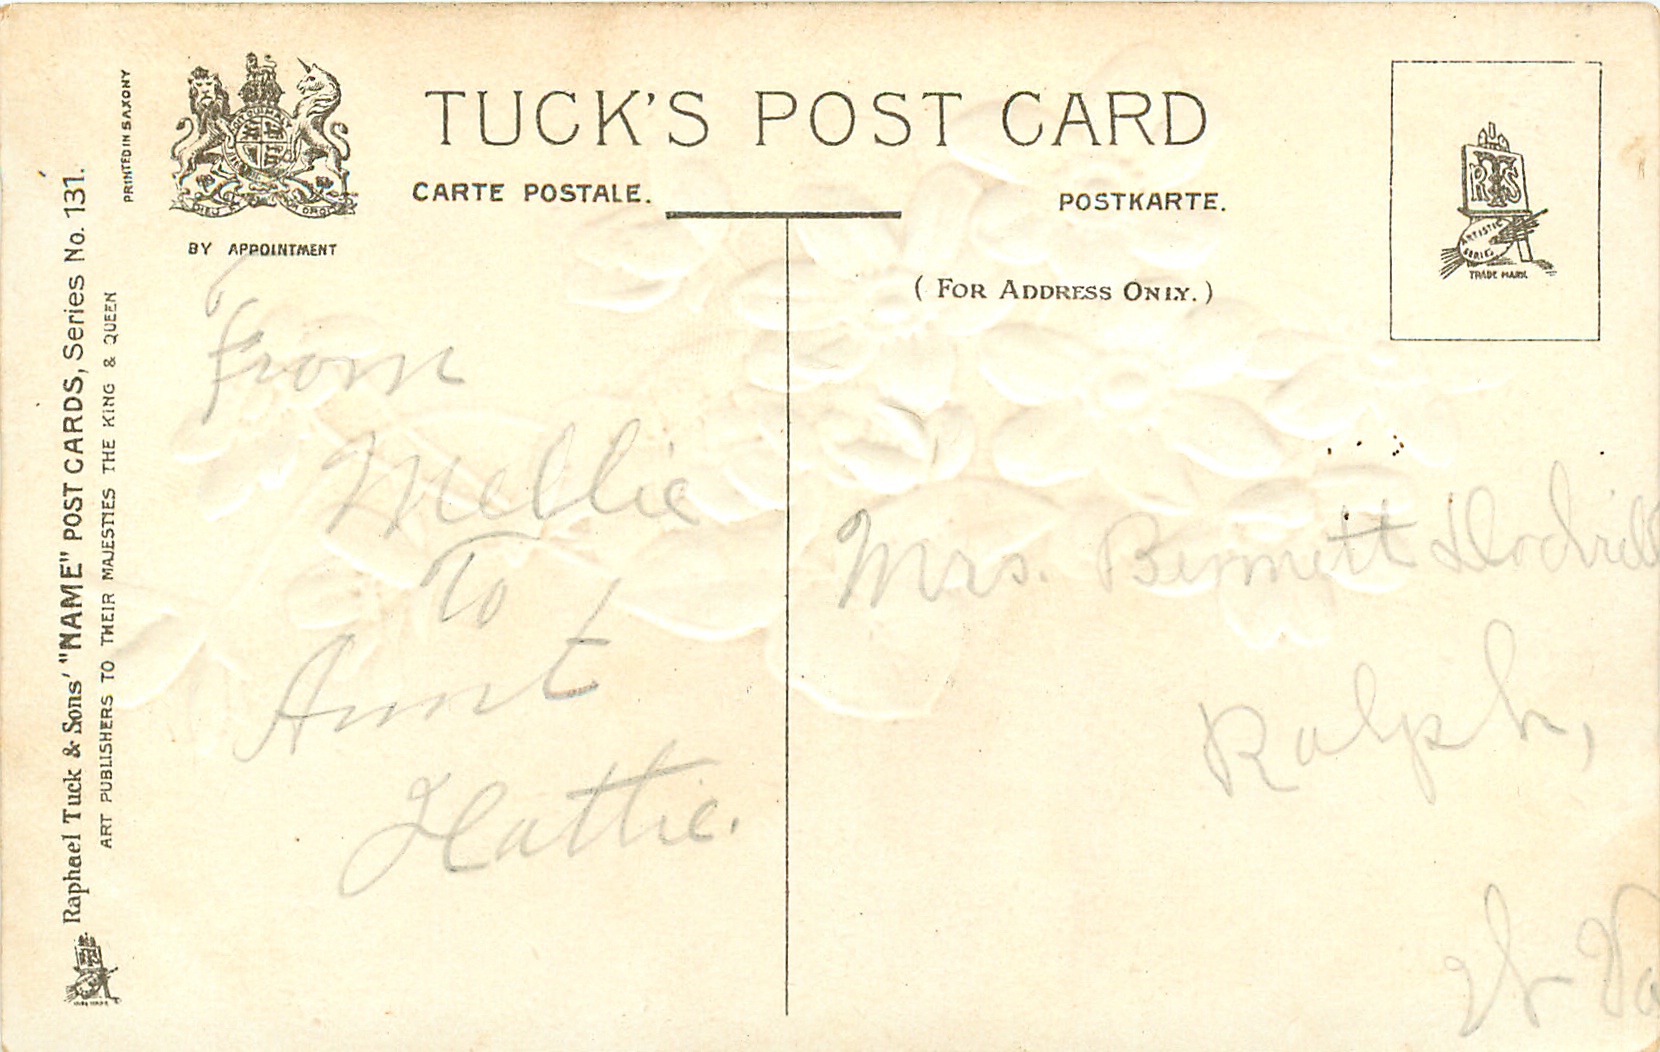 TUCK'S POST CARD
CARTE POSTALE.
POSTKARTE.
(FOR ADDRESS ONLY.)
BY APPOINTMENT
PRINTED IN SAXONY
Raphael Tuck & Sons' "NAME" POST CARDS, Series No. 131.
ART PUBLISHERS TO THEIR MAJESTIES THE KING & QUEEN
RTS
ARTISTIC
SERIES
TRADE MARK
From
Mellie
To
Aunt
Hattie.
Mrs. Bennett
Ralph,
W Va